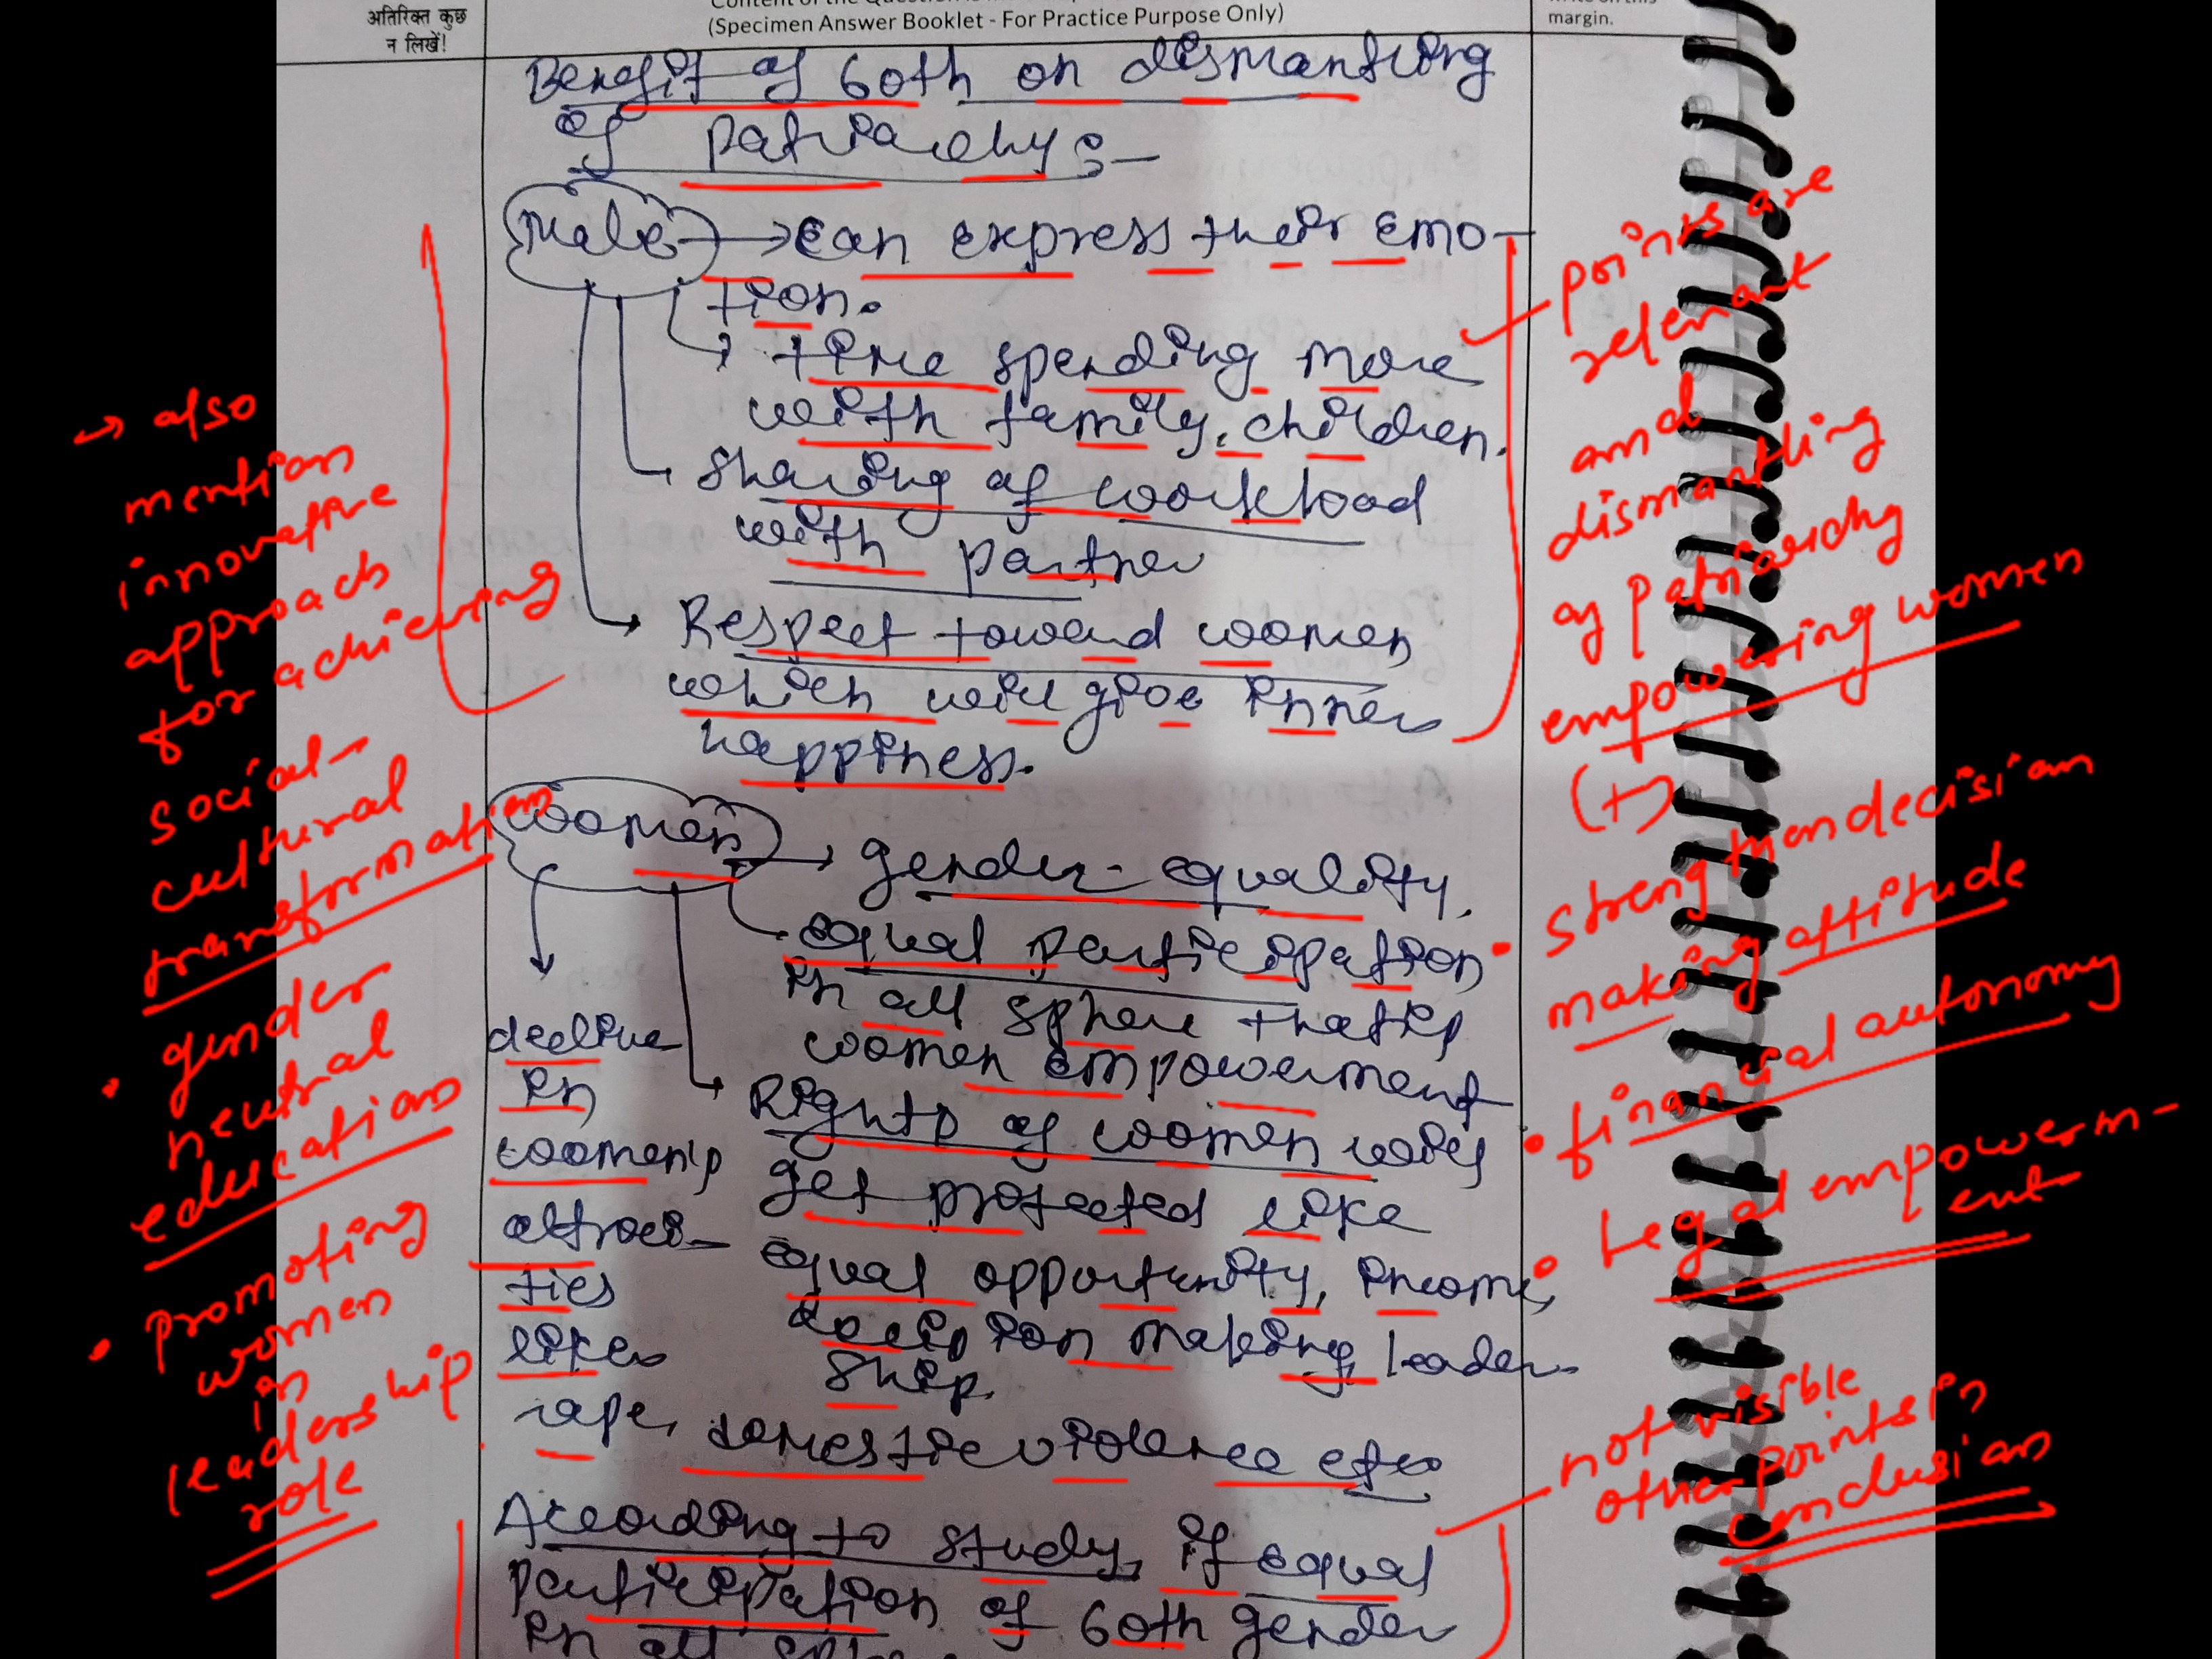 अतिरिक्त कुछ
न लिखें!
(Specimen Answer Booklet - For Practice Purpose Only)
margin.
Benefit of both on dismantling
of patriarchy :-
Male → Can express their emo-
tion.
→ time spending more
with family, children.
Sharing of workload
with partner
→ Respect toward women
which will give inner
happiness.
Women → gender-equality,
equal participation
in all sphere that is
women empowerment
→ Rights of women will
get protected like
equal opportunity, income,
decision making, leader-
ship.
decline
in
women's
atroci-
ties
like
rape, domestic violence etc
According to study, if equal
participation of both gender
in all
→ also
mention
innovative
approach
for achieving
social-
cultural
transformation
• gender
neutral
education
• promoting
women
in
leadership
role
points are
relevant
and
dismantling
of patriarchy
empowering women
(+)
• strengthen decision
making attitude
• financial autonomy
• Legal empowerm-
ent
not visible
other points in
conclusion